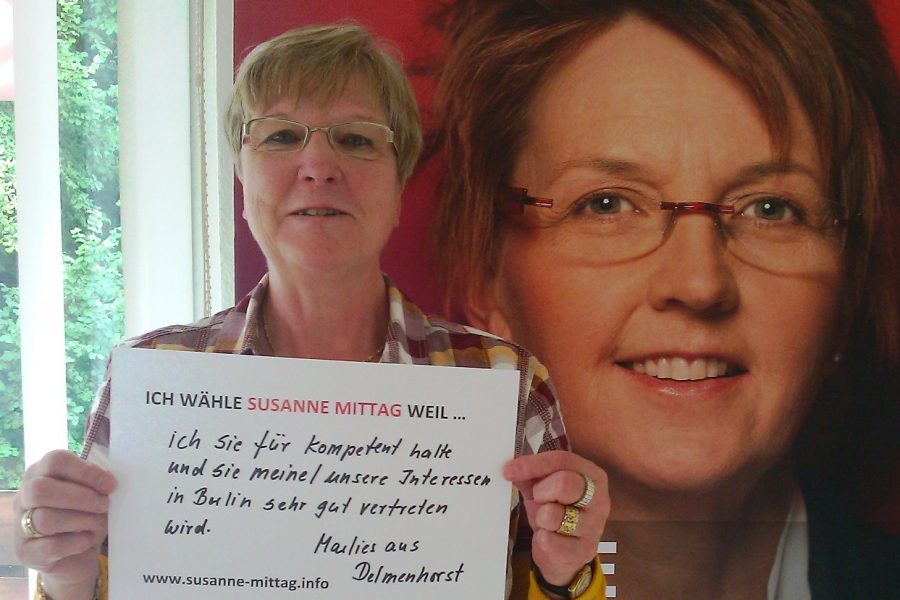 ICH WÄHLE SUSANNE MITTAG WEIL ...
ich sie für kompetent halte
und sie meine/unsere Interessen
in Berlin sehr gut vertreten
wird.
Marlies aus
Delmenhorst
www.susanne-mittag.info